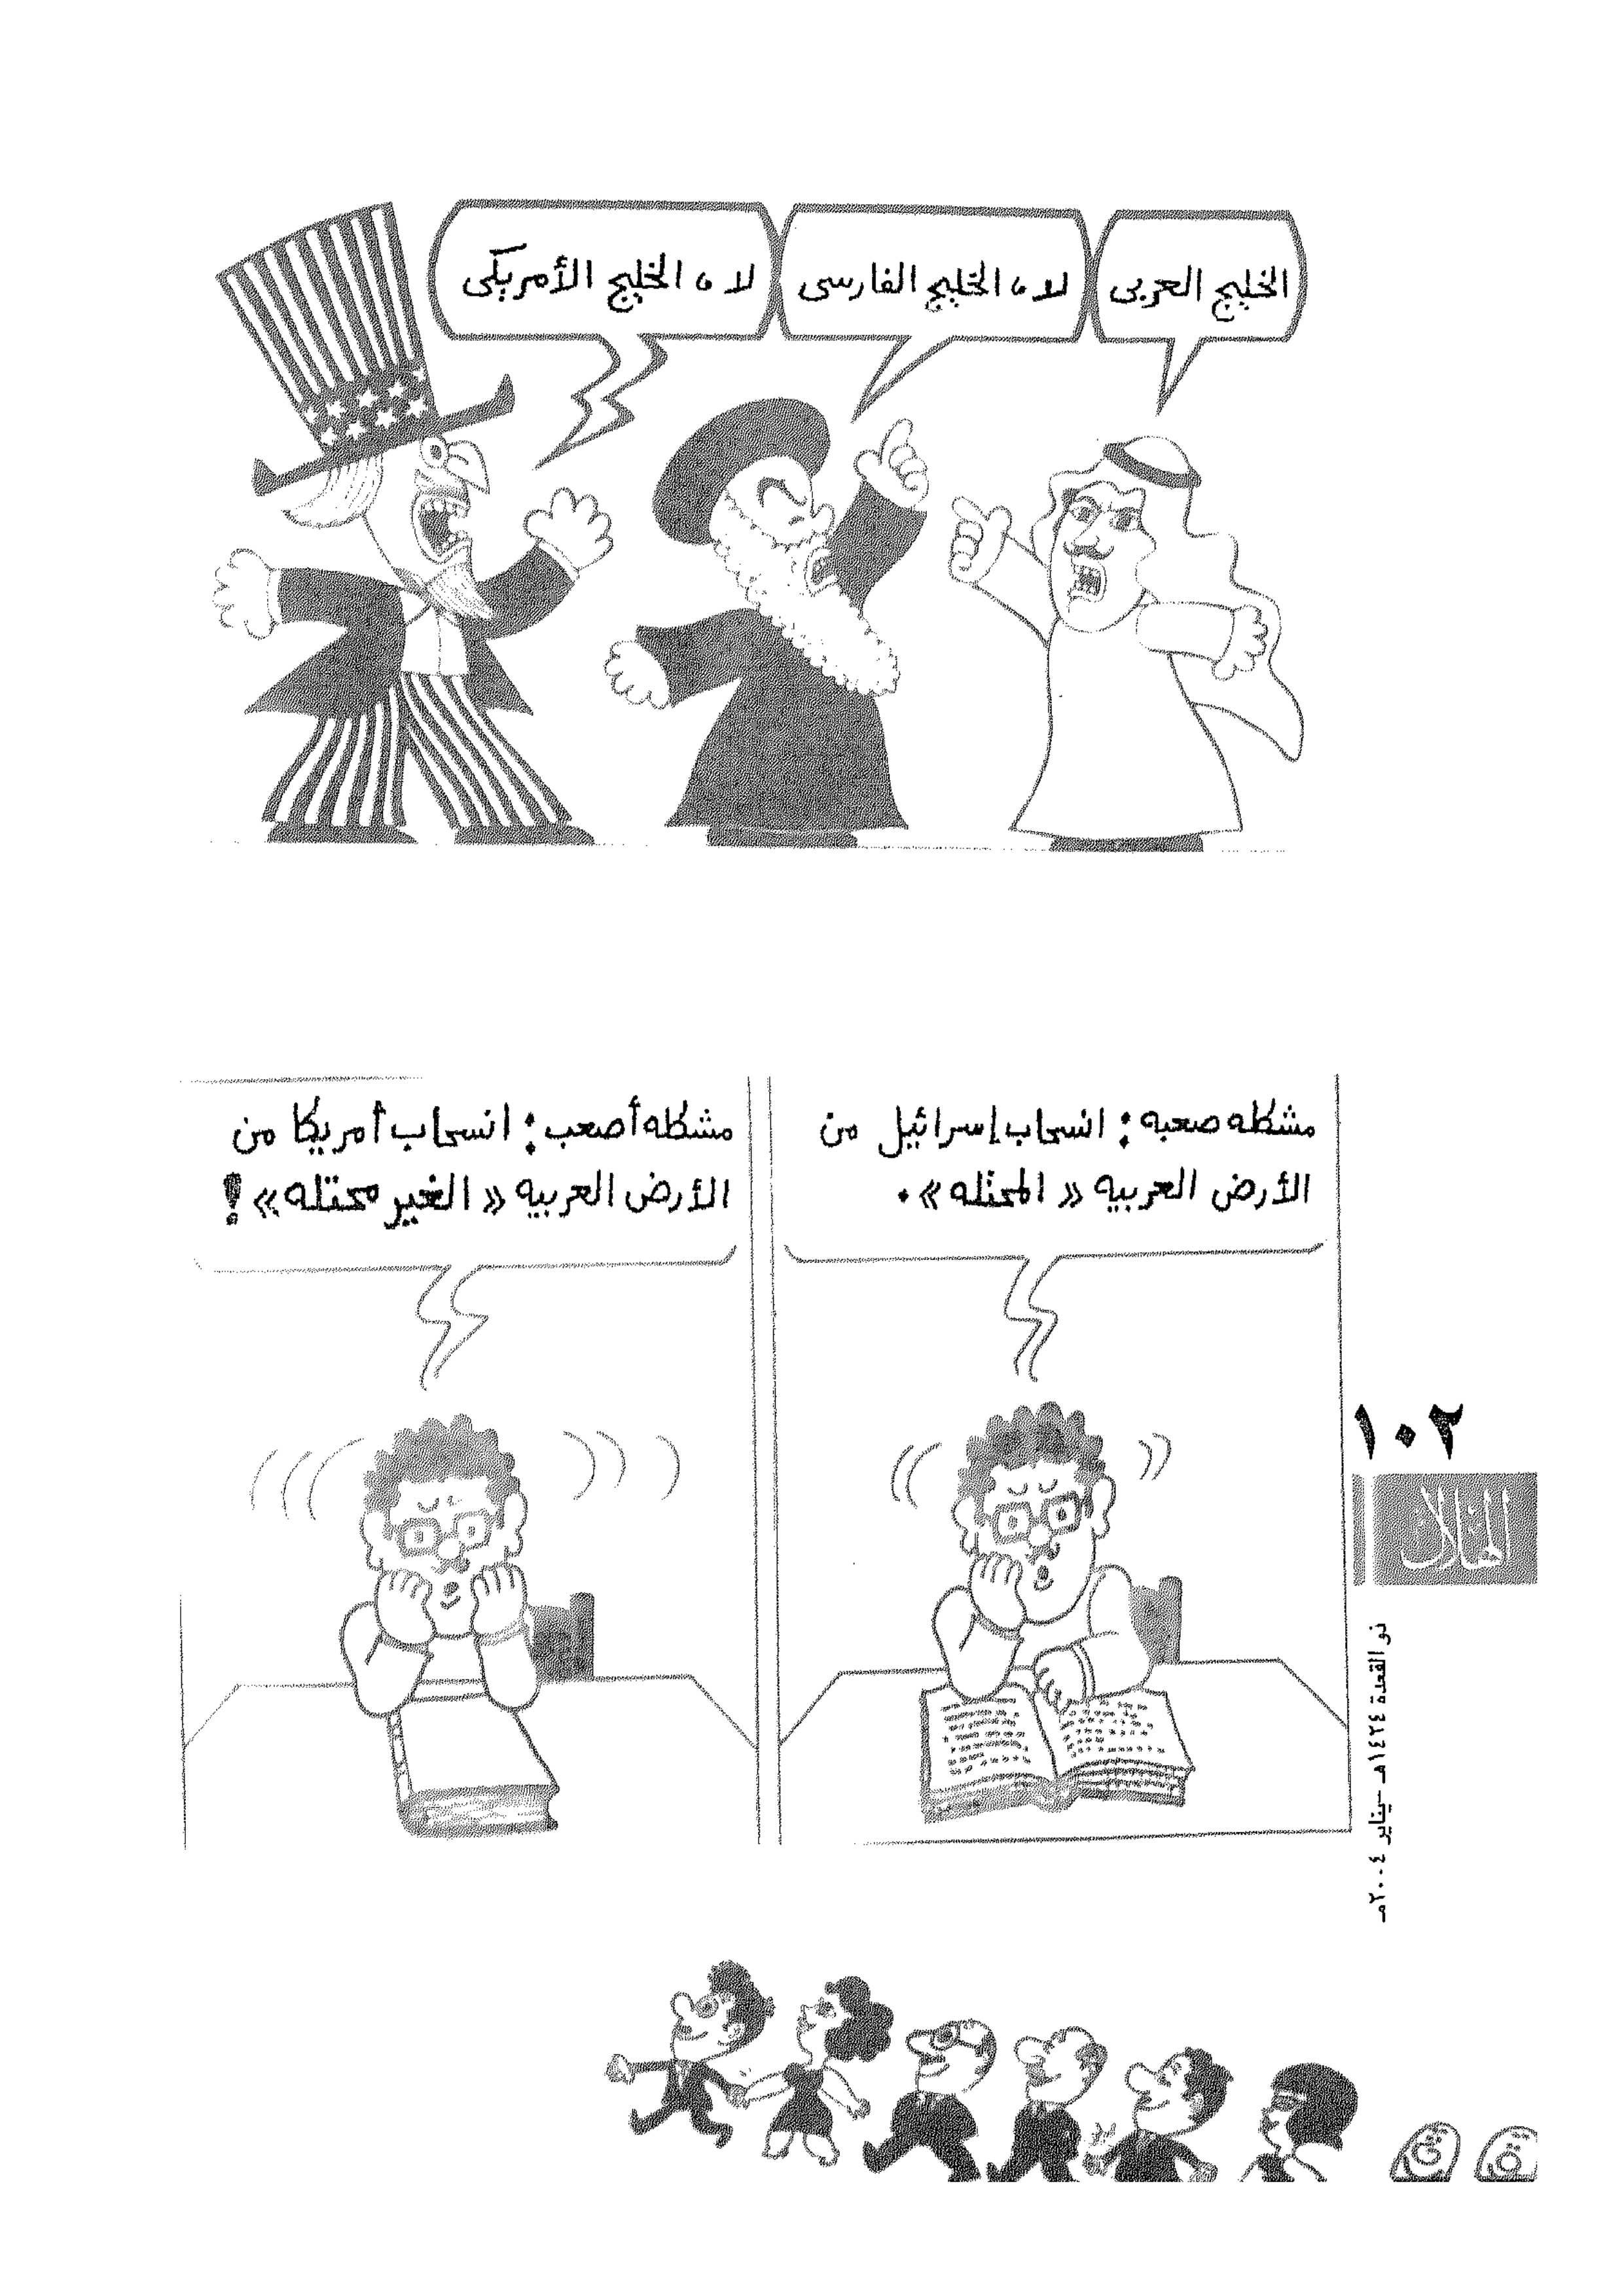 الخليج العربى
لا، الخليج الفارسى
لا، الخليج الأمريكى
مشكله صعبه: انسحاب إسرائيل من
الأرض العربيه «المحتله».
مشكله أصعب: انسحاب أمريكا من
الأرض العربيه «الغير محتله»!
١٠٢
الهلال
ذو القعدة ١٤٢٤هـ - يناير ٢٠٠٤مـ